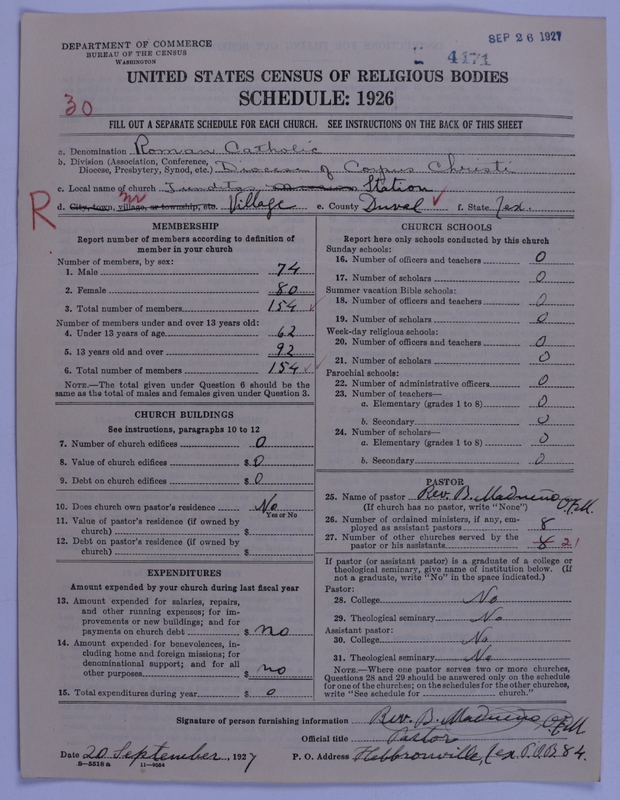 SEP 26 1927
4171
DEPARTMENT OF COMMERCE
BUREAU OF THE CENSUS
WASHINGTON
UNITED STATES CENSUS OF RELIGIOUS BODIES
SCHEDULE: 1926
30
FILL OUT A SEPARATE SCHEDULE FOR EACH CHURCH. SEE INSTRUCTIONS ON THE BACK OF THIS SHEET
a. Denomination Roman Catholic
b. Division (Association, Conference, Diocese, Presbytery, Synod, etc.) Diocese of Corpus Christi
c. Local name of church Station
R
d. City, town, village, or township, etc. Village e. County Duval f. State Tex.
MEMBERSHIP
Report number of members according to definition of
member in your church
Number of members, by sex:
1. Male 74
2. Female 80
3. Total number of members 154
Number of members under and over 13 years old:
4. Under 13 years of age 62
5. 13 years old and over 92
6. Total number of members 154
NOTE.—The total given under Question 6 should be
same as the total of males and females given under Question 3.
CHURCH BUILDINGS
See instructions, paragraphs 10 to 12
7. Number of church edifices 0
8. Value of church edifices $ 0
9. Debt on church edifices $ 0
10. Does church own pastor's residence No
Yes or No
11. Value of pastor's residence (if owned by
church) $
12. Debt on pastor's residence (if owned by
church) $
EXPENDITURES
Amount expended by your church during last fiscal year
13. Amount expended for salaries, repairs,
and other running expenses; for im-
provements or new buildings; and for
payments on church debt $ no
14. Amount expended for benevolences, in-
cluding home and foreign missions; for
denominational support; and for all
other purposes $ no
15. Total expenditures during year $ 0
CHURCH SCHOOLS
Report here only schools conducted by this church
Sunday schools:
16. Number of officers and teachers 0
17. Number of scholars 0
Summer vacation Bible schools:
18. Number of officers and teachers 0
19. Number of scholars 0
Week-day religious schools:
20. Number of officers and teachers 0
21. Number of scholars 0
Parochial schools:
22. Number of administrative officers 0
23. Number of teachers—
a. Elementary (grades 1 to 8) 0
b. Secondary 0
24. Number of scholars—
a. Elementary (grades 1 to 8) 0
b. Secondary 0
PASTOR
25. Name of pastor Rev. B. Madueño O.F.M.
(If church has no pastor, write "None")
26. Number of ordained ministers, if any, em-
ployed as assistant pastors 8
27. Number of other churches served by the
pastor or his assistants 8 21
If pastor (or assistant pastor) is a graduate of a college or
theological seminary, give name of institution below. (If
not a graduate, write "No" in the space indicated.)
Pastor:
28. College No
29. Theological seminary No
Assistant pastor:
30. College No
31. Theological seminary No
NOTE.—Where one pastor serves two or more churches,
Questions 28 and 29 should be answered only on the schedule
for one of the churches; on the schedules for the other churches,
write "See schedule for church."
Signature of person furnishing information Rev. B. Madueño, O.F.M.
Official title Pastor
Date 20 September, 1927 P. O. Address Hebbronville, Tex. P.O.B. 84.
8—5518 a 11—9564